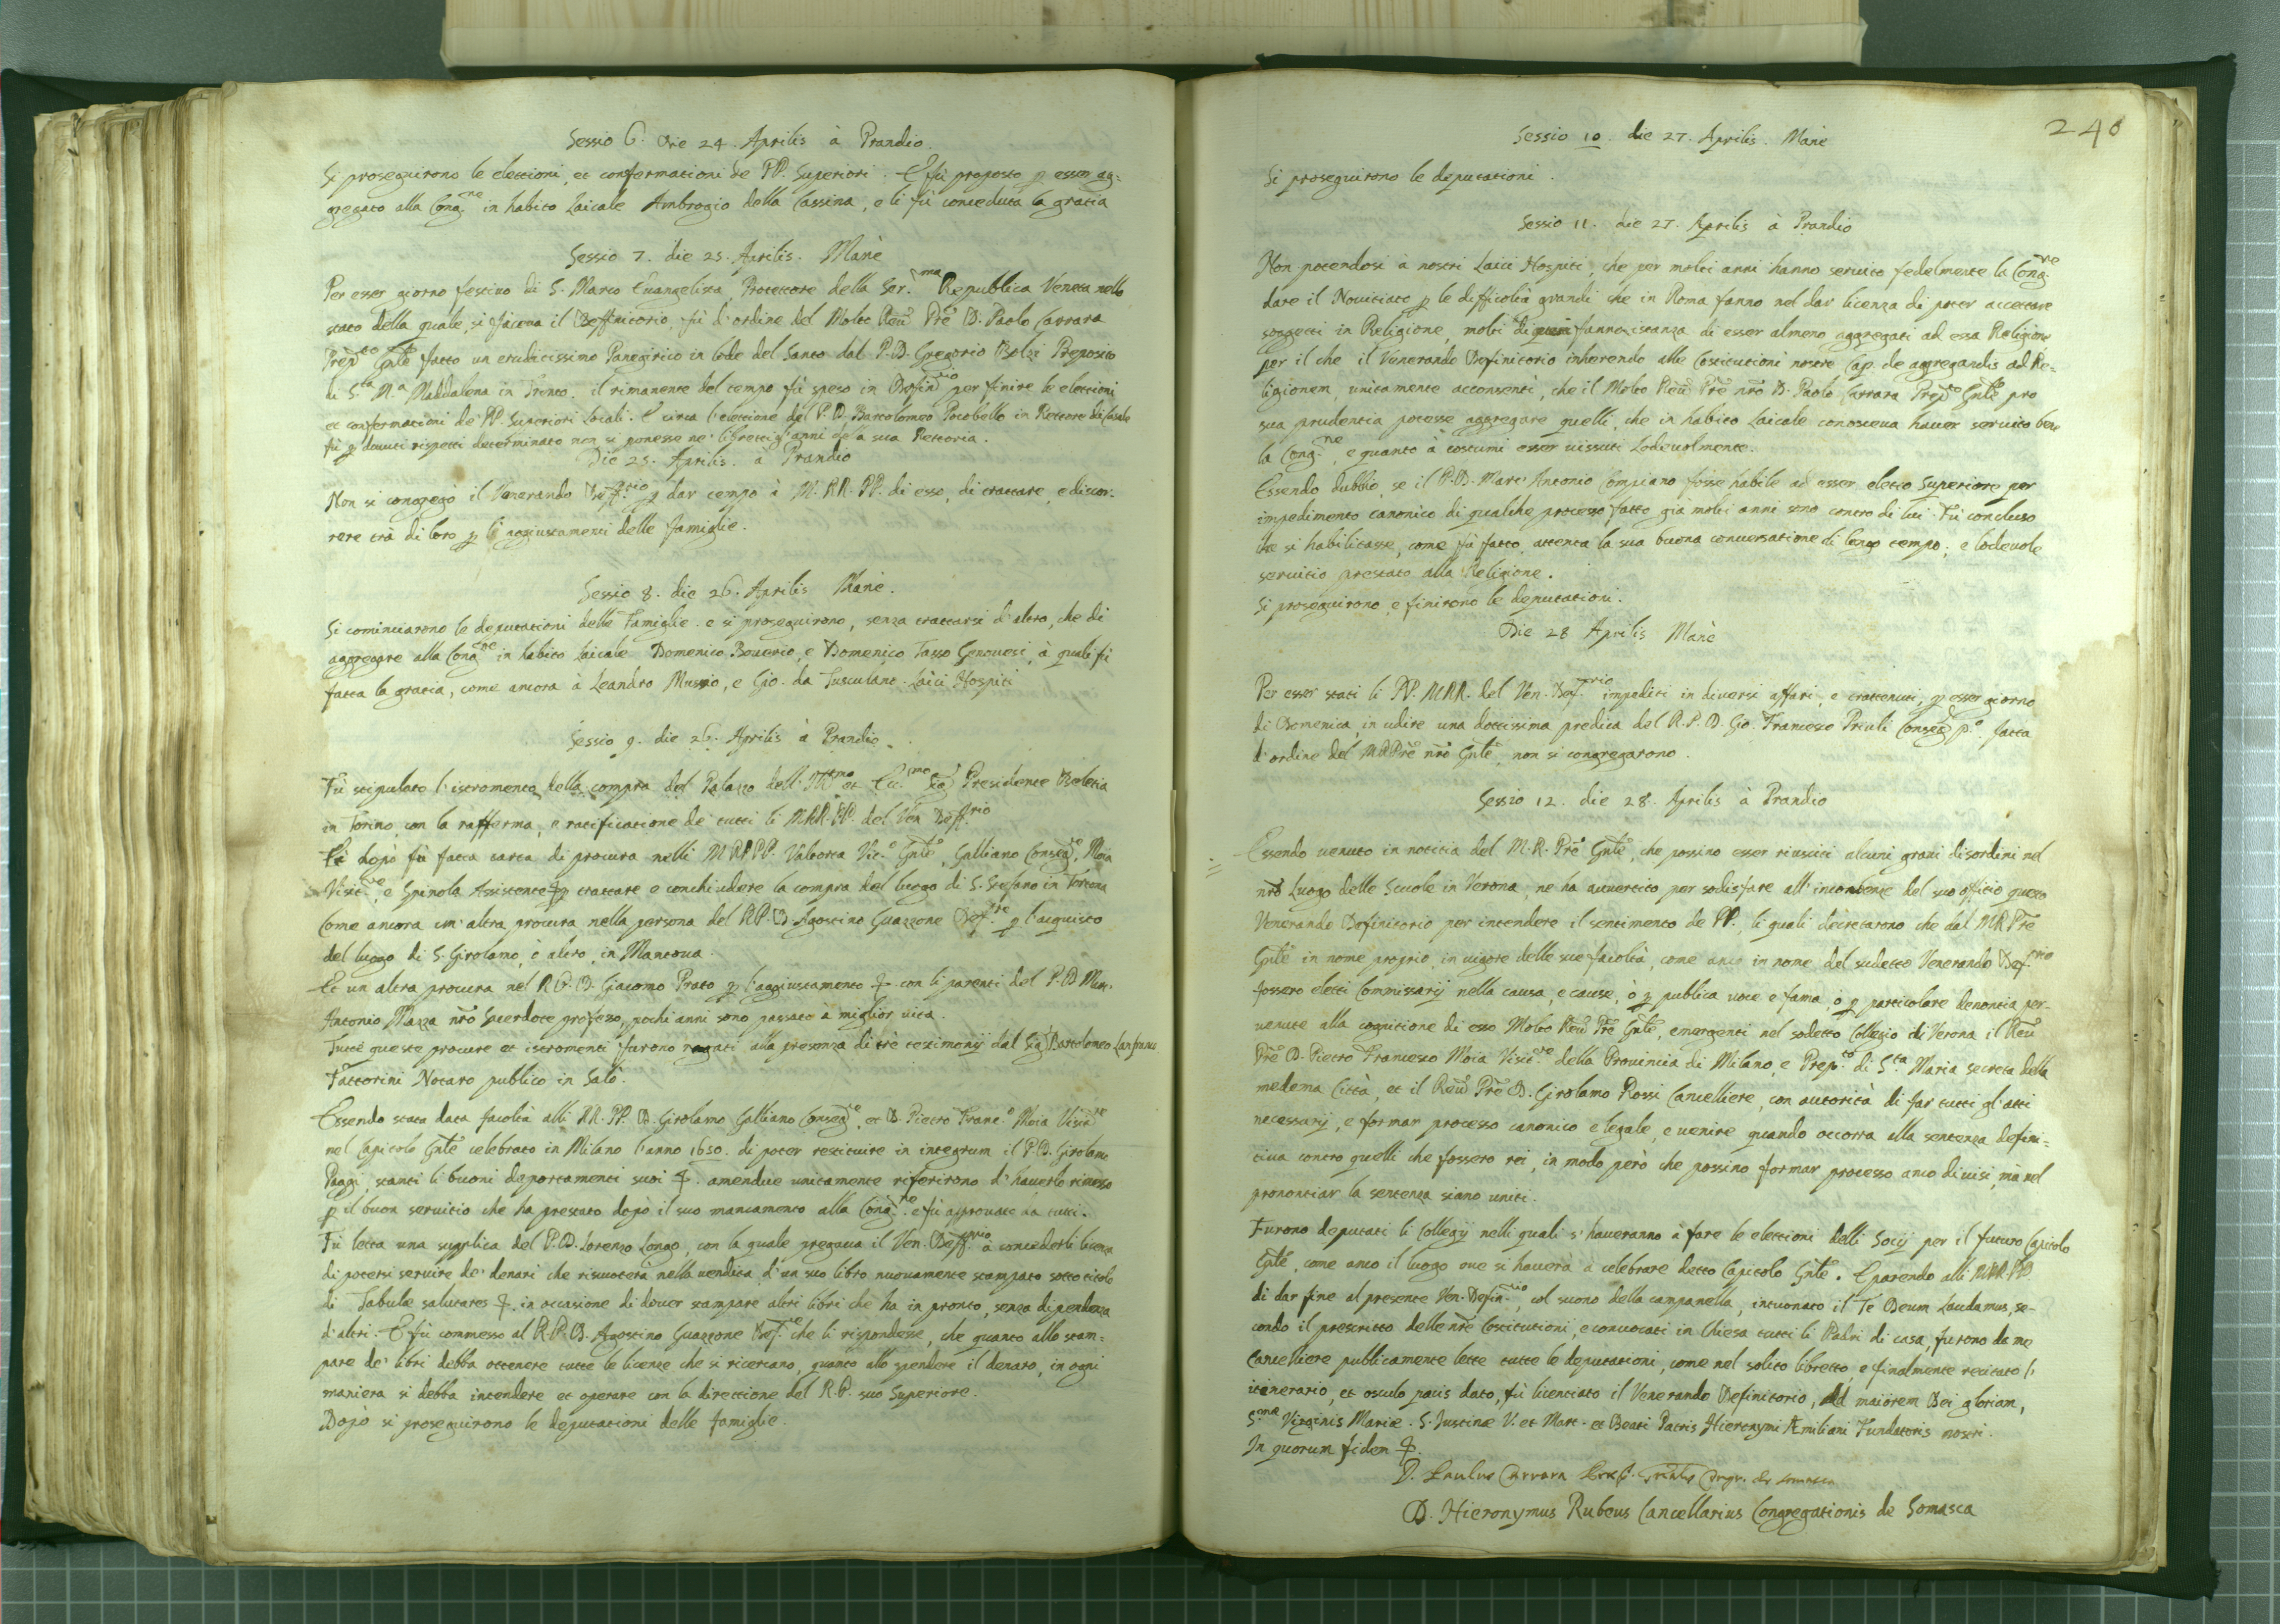 Sessio 6. die 24. Aprilis à Prandio.
Si proseguirono le elettioni, et confermationi de PP. Superiori. E fù proposto p esser ag=
gregato alla Cong.ne in habito Laicale Ambrogio della Cassina, e li fù conceduta la gratia
Sessio 7. die 25. Aprilis. Manè
Per esser giorno festivo di S. Marco Euangelista, Protettore della Ser.ma Republica Veneta nello
stato della quale, si faceua il Deffinitorio, fù d'ordine del Molto Reu.do Prē D. Paolo Carrara
Prep.to Gnle fatto un eruditissimo Panegirico in lode del Santo dal P. D. Gregorio Bolzi Preposito
di S.ta M.a Maddalena in Trento. il rimanente del tempo fù speso in Defin.rio per finire le elettioni
et confermationi de PP. Superiori Locali. E circa l'elettione del P. D. Bartolomeo Pocobello in Rettore di Casale
fù p douuti rispetti determinato non si ponesse ne' libretti gl'anni della sua Rettoria.
Die 25. Aprilis. à Prandio
Non si congregò il Venerando Deff.rio p dar tempo à M. RR. PP. di esso, di trattare, e discor-
rere trà di loro p li aggiustamenti delle famiglie.
Sessio 8. die 26. Aprilis Manè.
Si cominciarono le deputationi delle Famiglie. e si proseguirono, senza trattarsi d'altro, che di
aggregare alla Cong.ne in habito Laicale Domenico Bouerio, e Domenico Tasso Genouesi, à quali fù
fatta la gratia, come ancora à Leandro Mussio, e Gio. da Tusculano. Laici Hospiti
Sessio 9. die 26. Aprilis à Prandio.
Fù stipulato l'istromento della compra del Palazzo dell' Ill.mo et Ecc.mo Sig.r Presidente Beletia
in Torino, con la rafferma, e ratificatione de' tutti li MRR. PP. del Ven. Deff.rio
Et dopò fù fatta carta di procura nelli M RR PP. Valtorta Vic.o Gnle, Galliano Consig.re, Moia
Visit.re, e Spinola Assistente p trattare e conchiudere la compra del luogo di S. Stefano in Tortona
Come ancora un' altra procura nella persona del R. P. D. Agostino Guazzone Def.re p l'acquisto
del luogo di S. Girolamo, ò altro, in Mantoua.
Et un altra procura nel R. P. D. Giacomo Prato p l'aggiustamento &. con li parenti del P. D. Marc'
Antonio Mazza nrō Sacerdote professo, pochi anni sono passato à miglior vita.
Tutte queste procure et istromenti furono rogati alla presenza di trè testimonij dal Sig.r Bartolomeo Lanfranco
Fattorini Notaro publico in Salò.
Essendo stata data facoltà alli RR. PP. D. Girolamo Galliano Consig.re, et D. Pietro Franc.o Moia Visit.re
nel Capitolo Gnle celebrato in Milano l'anno 1650. di poter restituire in integrum il P. D. Girolamo
Paggi, stanti li buoni deportamenti suoi &. amendue unitamente riferirono d'hauerlo rimesso
p il buon seruitio che ha prestato dopò il suo mancamento alla Cong.ne e fù approuato da tutti.
Fù letta una supplica del P. D. Lorenzo Longo, con la quale pregaua il Ven. Deff.rio à concederli licenza
di potersi seruire de' denari che riscuoterà nella vendita d'un suo libro nuouamente stampato sotto titolo
di Tabulæ salutares &. in occasione di douer stampare altri libri che ha in pronto, senza dipendenza
d'altri. E fù commesso al R. P. D. Agostino Guazzone Def.re che li rispondesse, che quanto allo stam=
pare de' libri debba ottenere tutte le licenze che si ricercano, quanto allo spendere il denaro, in ogni
maniera si debba intendere et operare con la direttione del R. P. suo Superiore.
Dopò si proseguirono le deputationi delle famiglie.
240
Sessio 10. die 27. Aprilis. Manè
Si proseguirono le deputationi.
Sessio 11. die 27. Aprilis à Prandio
Non potendosi à nostri Laici Hospiti, che per molti anni hanno seruito fedelmente la Cong.ne
dare il Nouitiato p le difficoltà grandi che in Roma fanno nel dar licenza di poter accettare
soggetti in Religione, molti di fanno istanza di esser almeno aggregati ad essa Religione
per il che il Venerando Definitorio inherendo alle Costitutioni nostre Cap. de aggregandis ad Re=
ligionem, unitamente acconsentì, che il Molto Reu.do Prē nrō D. Paolo Carrara Prep.to Gnle pro
sua prudentia potesse aggregare quelli, che in habito Laicale conosceua hauer seruito bene
la Cong.ne, e quanto à costumi esser uissuti Lodeuolmente.
Essendo dubbio, se il P. D. Marc' Antonio Compiano fosse habile ad esser eletto Superiore per
impedimento canonico di qualche processo fatto già molti anni sono contro di lui. Fù concluso
che si habilitasse, come fù fatto, attenta la sua buona conuersatione di longo tempo, e lodeuole
seruitio prestato alla Religione.
Si proseguirono, e finirono le deputationi.
Die 28 Aprilis Manè
Per esser stati li PP. MRR. del Ven. Def.rio impediti in diuersi affari, e trattenuti, p esser giorno
di Domenica, in udire una dottissima predica del R. P. D. Gio. Francesco Priuli Consig.re p.o fatta
d'ordine del M R Prē nrō Gnle, non si congregarono.
Sessio 12. die 28. Aprilis à Prandio
Essendo uenuto in notitia del M. R. Prē Gnle, che possino esser riusciti alcuni graui disordini nel
nrō Luogo delle Scuole in Verona, ne ha auuertito per sodisfare all' incombente del suo officio questo
Venerando Definitorio per intendere il sentimento de PP. li quali decretarono che dal M R Prē
Gnle in nome proprio, in uigore delle sue facoltà, come anco in nome del sudetto Venerando Def.rio
fossero eletti Commissarij nella causa, e cause, ò p publica uoce e fama, ò p particolare denontia per-
uenute alla cognitione di esso Molto Reu.do Prē Gnle, emergenti nel sodetto Collegio di Verona il Reu.do
Prē D. Pietro Francesco Moia Visit.re della Prouincia di Milano, e Prep.to di S.ta Maria secreta della
medema Città, et il Reu.do Prē D. Girolamo Rossi Cancelliere, con autorità di far tutti gl'atti
necessarij, e formar processo canonico e legale, e uenire quando occorra alla sentenza defini=
tiua contro quelli che fossero rei, in modo però che possino formar processo anco diuisi, ma nel
prononciar la sentenza siano uniti.
Furono deputati li Collegij nelli quali s'haueranno à fare le elettioni delli Socij per il futuro Capitolo
Gnle, come anco il luogo oue si hauerà à celebrare detto Capitolo Gnle. E parendo alli MRR. PP.
di dar fine al presente Ven. Defin.rio, col suono della campanella, intuonato il Te Deum Laudamus, se-
condo il prescritto delle nrē Costitutioni, e conuocati in Chiesa tutti li Padri di casa, furono da me
Cancelliere publicamente lette tutte le deputationi, come nel solito libretto, e finalmente recitato l'
itinerario, et osculo pacis dato, fù licentiato il Venerando Definitorio, Ad maiorem Dei gloriam,
S.mæ Virginis Mariæ. S. Justinæ V. et Mart. et Beati Patris Hieronymi Æmiliani Fundatoris nostri.
In quorum fidem &.
D. Paulus Carrara Præp. Gnalis Congr. de Somasca
D. Hieronymus Rubeus Cancellarius Congregationis de Somasca